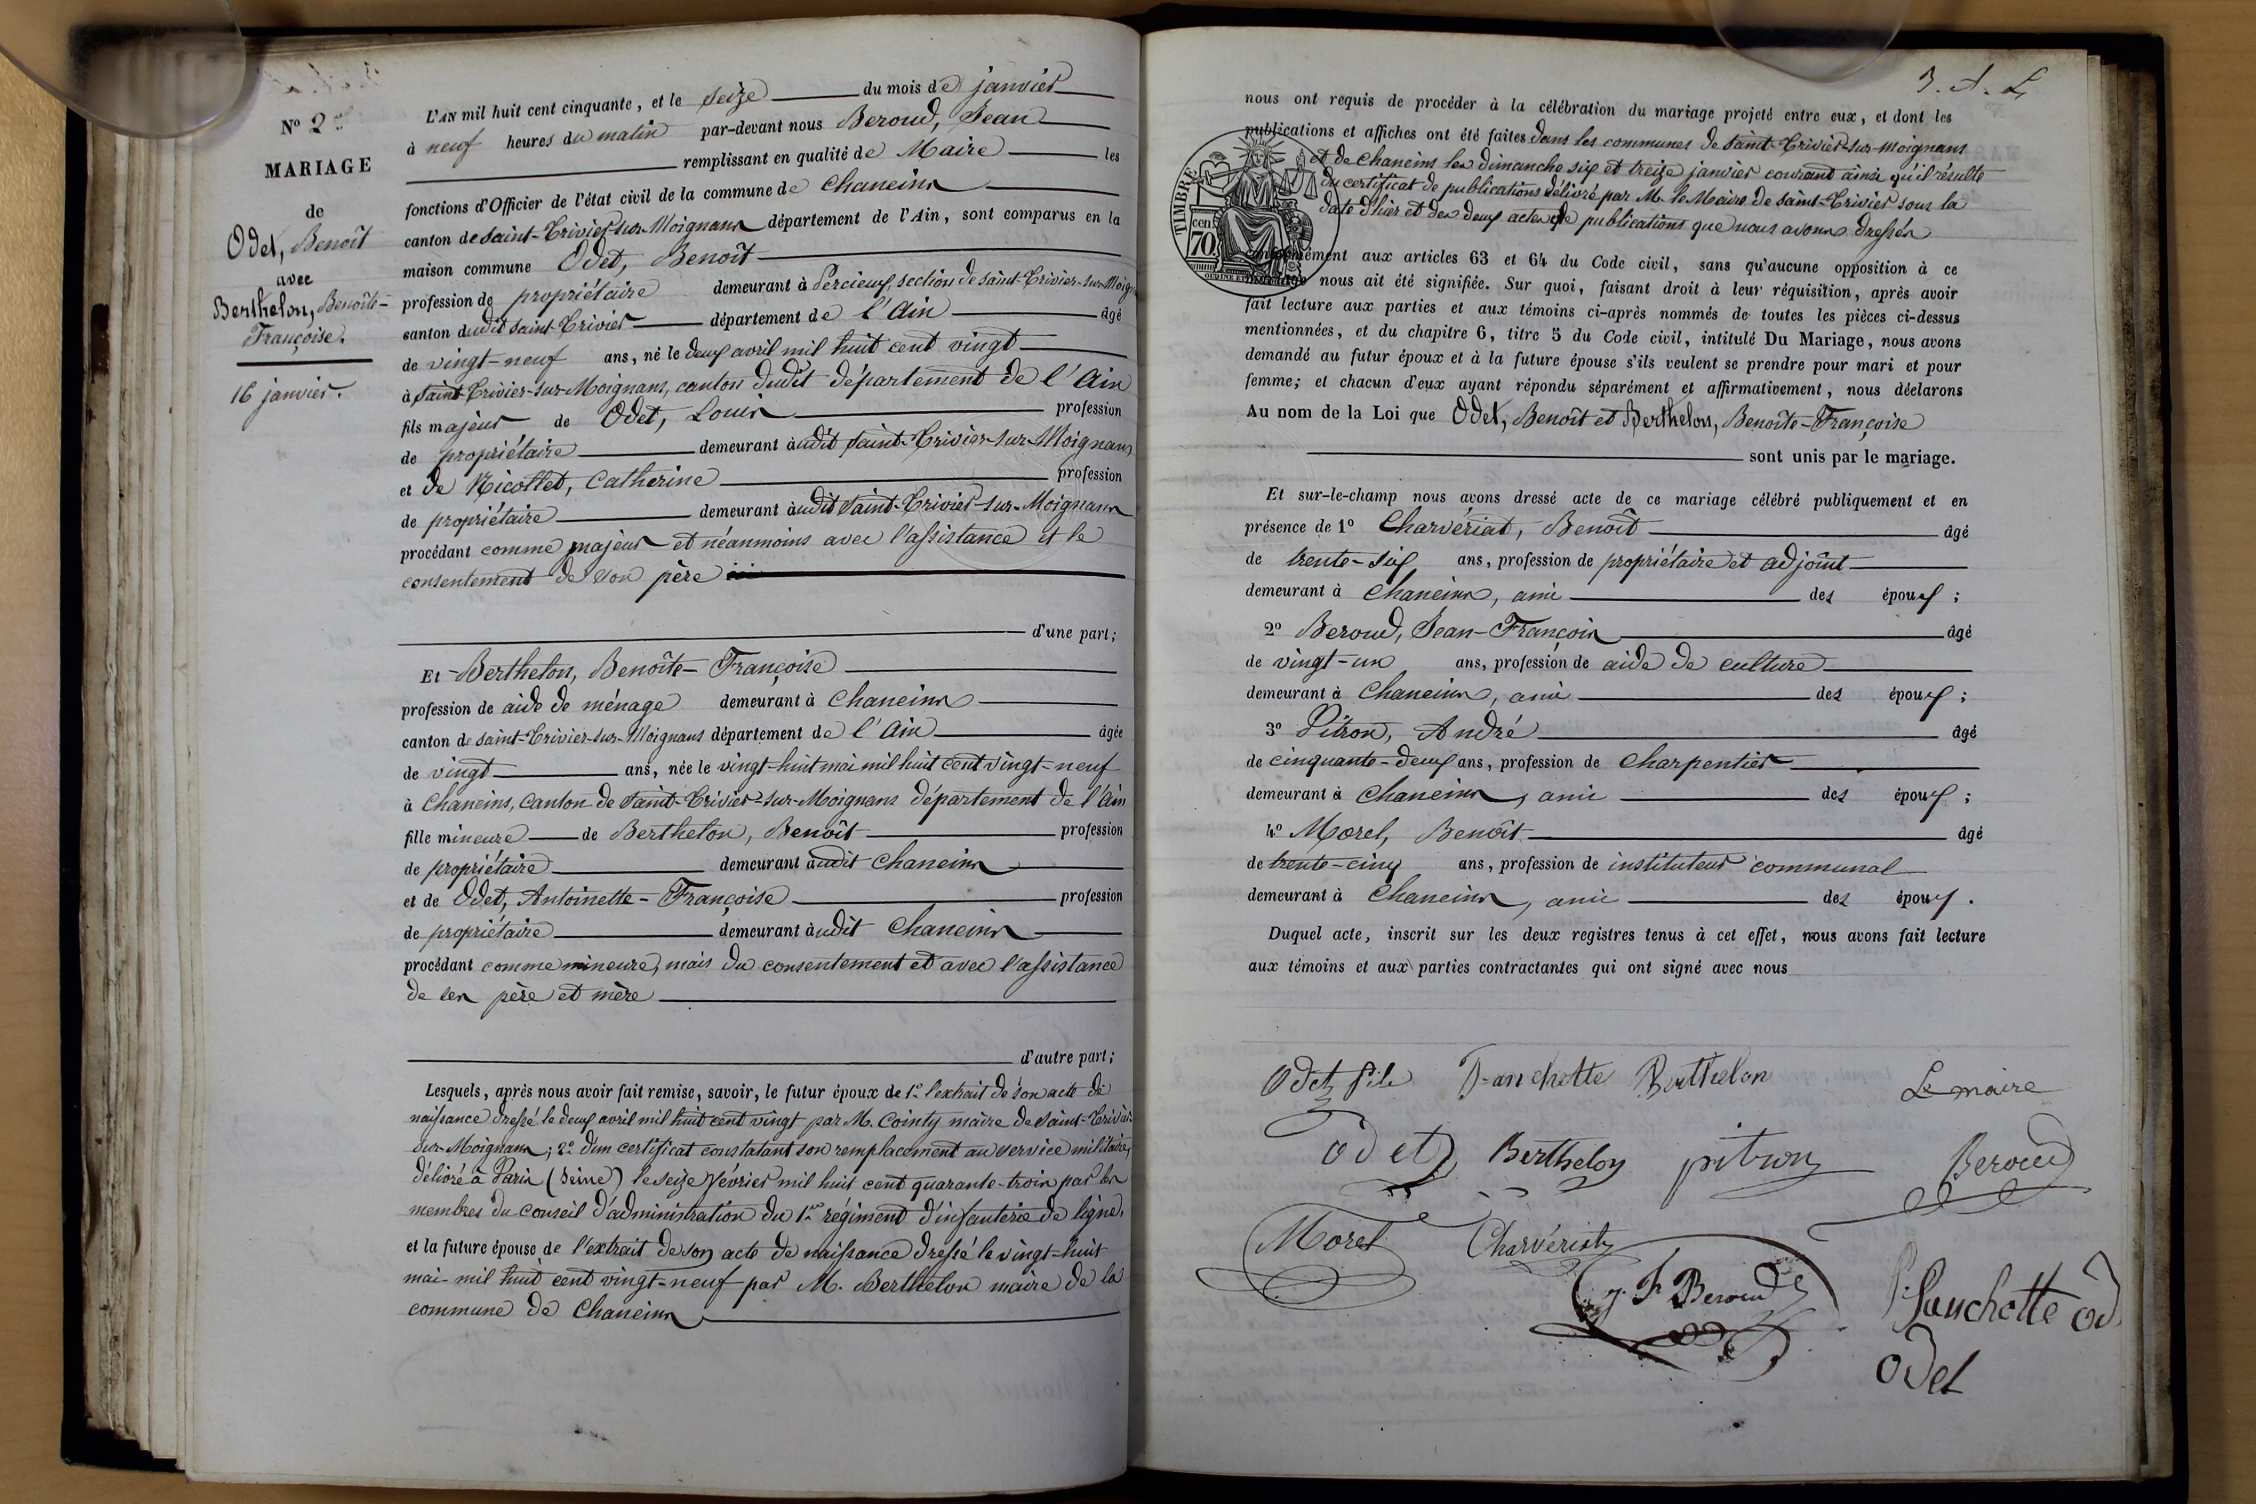 Nº 2
MARIAGE
de
Odet, Benoît
avec
Berthelon, Benoîte-
Françoise.
16 janvier.
L'AN mil huit cent cinquante, et le seize du mois de janvier
à neuf heures du matin par-devant nous Beroud, Jean
remplissant en qualité de Maire les
fonctions d'Officier de l'état civil de la commune de Chaneins
canton de Saint-Trivier-sur-Moignans département de l'Ain, sont comparus en la
maison commune Odet, Benoît
profession de propriétaire demeurant à Percieux, section de Saint-Trivier-sur-Moign
canton dudit Saint-Trivier département de l'Ain âgé
de vingt-neuf ans, né le deux avril mil huit cent vingt
à Saint-Trivier-sur-Moignans, canton dudit département de l'Ain
fils majeur de Odet, Louis profession
de propriétaire demeurant audit Saint-Trivier-sur-Moignans
et de Nicollet, Catherine profession
de propriétaire demeurant audit Saint-Trivier-sur-Moignans
procédant comme majeur et néanmoins avec l'assistance et le
consentement de son père
d'une part;
Et Berthelon, Benoîte-Françoise
profession de aide de ménage demeurant à Chaneins
canton de Saint-Trivier-sur-Moignans département de l'Ain âgée
de vingt ans, née le vingt-huit mai mil huit cent vingt-neuf
à Chaneins, canton de Saint-Trivier-sur-Moignans département de l'Ain
fille mineure de Berthelon, Benoît profession
de propriétaire demeurant audit Chaneins
et de Odet, Antoinette-Françoise profession
de propriétaire demeurant audit Chaneins
procédant comme mineure, mais du consentement et avec l'assistance
de ses père et mère
d'autre part;
Lesquels, après nous avoir fait remise, savoir, le futur époux de 1º l'extrait de son acte de
naissance dressé le deux avril mil huit cent vingt par M. Cointy maire de Saint-Trivier-
sur-Moignans; 2º d'un certificat constatant son remplacement au service militaire,
délivré à Paris (Seine) le seize février mil huit cent quarante-trois par les
membres du conseil d'administration du 1er régiment d'infanterie de ligne,
et la future épouse de l'extrait de son acte de naissance dressé le vingt-huit
mai mil huit cent vingt-neuf par M. Berthelon maire de la
commune de Chaneins
nous ont requis de procéder à la célébration du mariage projeté entre eux, et dont les
publications et affiches ont été faites dans les communes de Saint-Trivier-sur-Moignans
et de Chaneins les dimanche six et treize janvier courant ainsi qu'il résulte
du certificat de publications délivré par M. le Maire de Saint-Trivier sous la
date d'hier et des deux actes de publications que nous avons dressés
TIMBRE
70 cen.
conformément aux articles 63 et 64 du Code civil, sans qu'aucune opposition à ce
nous ait été signifiée. Sur quoi, faisant droit à leur réquisition, après avoir
fait lecture aux parties et aux témoins ci-après nommés de toutes les pièces ci-dessus
mentionnées, et du chapitre 6, titre 5 du Code civil, intitulé Du Mariage, nous avons
demandé au futur époux et à la future épouse s'ils veulent se prendre pour mari et pour
femme; et chacun d'eux ayant répondu séparément et affirmativement, nous déclarons
Au nom de la Loi que Odet, Benoît et Berthelon, Benoîte-Françoise
sont unis par le mariage.
Et sur-le-champ nous avons dressé acte de ce mariage célébré publiquement et en
présence de 1º Charvériat, Benoît âgé
de trente-six ans, profession de propriétaire et adjoint
demeurant à Chaneins, ami des époux;
2º Beroud, Jean-François âgé
de vingt-un ans, profession de aide de culture
demeurant à Chaneins, ami des époux;
3º Pitron, André âgé
de cinquante-deux ans, profession de charpentier
demeurant à Chaneins, ami des époux;
4º Morel, Benoît âgé
de trente-cinq ans, profession de instituteur communal
demeurant à Chaneins, ami des époux.
Duquel acte, inscrit sur les deux registres tenus à cet effet, nous avons fait lecture
aux témoins et aux parties contractantes qui ont signé avec nous
Odet fils Fanchette Berthelon Le maire
odet Berthelon pitron Beroud
Morel Charvériat
J. F Beroud Fanchette od
odet